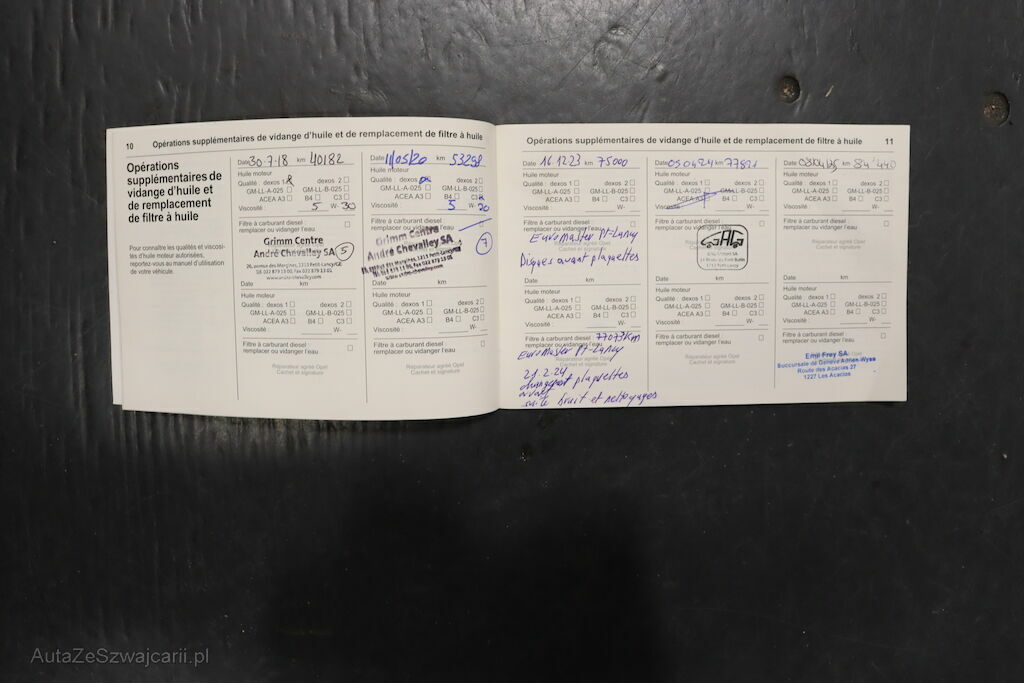 10 Opérations supplémentaires de vidange d'huile et de remplacement de filtre à huile
Opérations
supplémentaires de
vidange d'huile et
de remplacement
de filtre à huile
Pour connaître les qualités et viscosi-
tés d'huile moteur autorisées,
reportez-vous au manuel d'utilisation
de votre véhicule.
Date 30.7.18 km 40182
Huile moteur
Qualité : dexos 1 dexos 2
GM-LL-A-025 GM-LL-B-025
ACEA A3 B4 C3
Viscosité : 5 W- 30
Filtre à carburant diesel :
remplacer ou vidanger l'eau
Grimm Centre
André Chevalley SA 5
26, avenue des Morgines, 1213 Petit-Lancy/GE
Tél. 022 879 13 00, Fax 022 879 13 01
Date km
Huile moteur
Qualité : dexos 1 dexos 2
GM-LL-A-025 GM-LL-B-025
ACEA A3 B4 C3
Viscosité : W-
Filtre à carburant diesel :
remplacer ou vidanger l'eau
Réparateur agréé Opel
Cachet et signature
Date 11/05/20 km 53298
Huile moteur
Qualité : dexos dexos 2
GM-LL-A-025 GM-LL-B-025
ACEA A3 B4 C3
Viscosité : 5 W- 20
Filtre à carburant diesel :
remplacer ou vidanger l'eau
Grimm Centre
André Chevalley SA 7
Date km
Huile moteur
Qualité : dexos 1 dexos 2
GM-LL-A-025 GM-LL-B-025
ACEA A3 B4 C3
Viscosité : W-
Filtre à carburant diesel :
remplacer ou vidanger l'eau
Réparateur agréé Opel
Cachet et signature
Opérations supplémentaires de vidange d'huile et de remplacement de filtre à huile 11
Date 16.12.23 km 75000
Huile moteur
Qualité : dexos 1 dexos 2
GM-LL-A-025 GM-LL-B-025
ACEA A3 B4 C3
Viscosité : W-
Filtre à carburant diesel :
remplacer ou vidanger l'eau
EuroMaster Pt-Lancy
Disques avant plaquettes
Date km
Huile moteur
Qualité : dexos 1 dexos 2
GM-LL-A-025 GM-LL-B-025
ACEA A3 B4 C3
Viscosité : W-
Filtre à carburant diesel : 77073 km
remplacer ou vidanger l'eau
EuroMaster Pt-Lancy
Réparateur agréé Opel
Cachet et signature
21.2.24
changement plaquettes
avant
suite bruit et nettoyages
Date 05.04.24 km
Huile moteur
Qualité : dexos 1 dexos 2
GM-LL-A-025 GM-LL-B-025
ACEA A3 B4 C3
Viscosité : W-
Filtre à carburant diesel :
remplacer ou vidanger l'eau
1213 Petit-Lancy
Date km
Huile moteur
Qualité : dexos 1 dexos 2
GM-LL-A-025 GM-LL-B-025
ACEA A3 B4 C3
Viscosité : W-
Filtre à carburant diesel :
remplacer ou vidanger l'eau
Réparateur agréé Opel
Cachet et signature
Date 03/04/25 km 84'440
Huile moteur
Qualité : dexos 1 dexos 2
GM-LL-A-025 GM-LL-B-025
ACEA A3 B4 C3
Viscosité : W-
Filtre à carburant diesel :
remplacer ou vidanger l'eau
Réparateur agréé Opel
Cachet et signature
Date km
Huile moteur
Qualité : dexos 1 dexos 2
GM-LL-A-025 GM-LL-B-025
ACEA A3 B4 C3
Viscosité : W-
Filtre à carburant diesel :
remplacer ou vidanger l'eau
Emil Frey SA
Succursale de Genève Adrien-Wyss
Route des Acacias 27
1227 Les Acacias
AutaZeSzwajcarii.pl